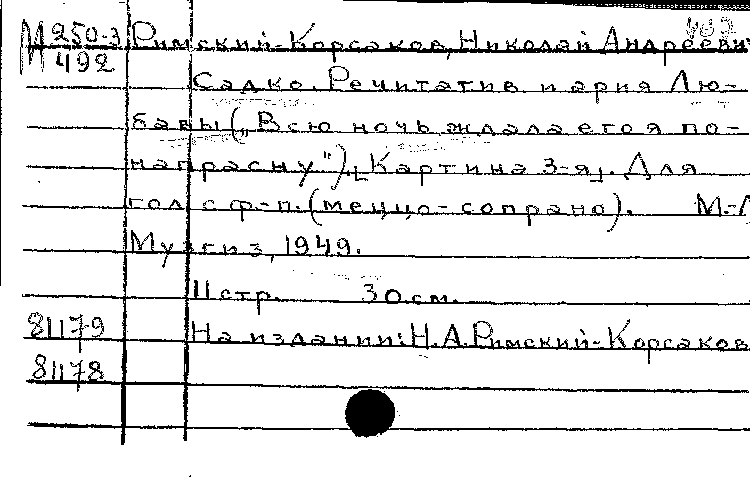 М 250-3 Римский-Корсаков, Николай Андрееви
492
Садко. Речитатив и ария Лю-
бавы („Всю ночь ждала его я по-
напрасну"). [Картина 3-я]. Для
гол. с ф-п. (меццо-сопрано). М.-Л
Музгиз, 1949.
11 стр. 30 см.
81179 На издании: Н.А. Римский-Корсаков
81178